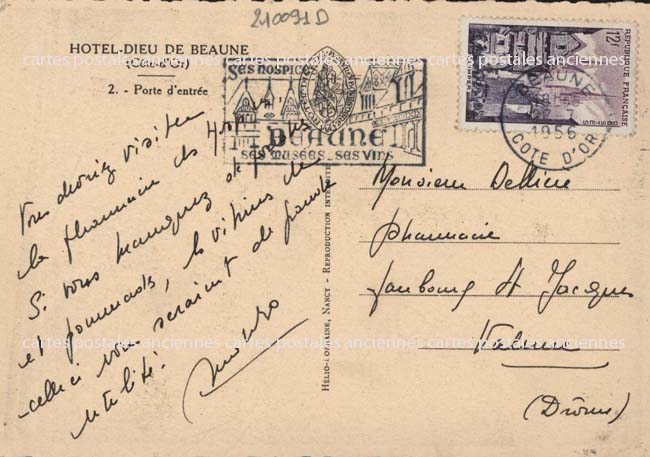 210091D
HOTEL-DIEU DE BEAUNE
(Côte-d'Or)
2. - Porte d'entrée
SES HOSPICES
BEAUNE
SES MUSÉES - SES VINS
12f
REPUBLIQUE FRANÇAISE
BEAUNE
1956
COTE D'OR
Vous devriez visiter
la pharmacie de
Si vous manquez de
et pommades, les vitrines de
celle-ci vous seraient de grande
utilité!
HÉLIO-LORRAINE, NANCY - REPRODUCTION INTERDITE
Monsieur Dellière
pharmacie
faubourg St Jacques
Valence
(Drôme)
cartes postales anciennes cartes postales anciennes cartes postales anciennes
cartes postales anciennes cartes postales anciennes cartes postales anciennes